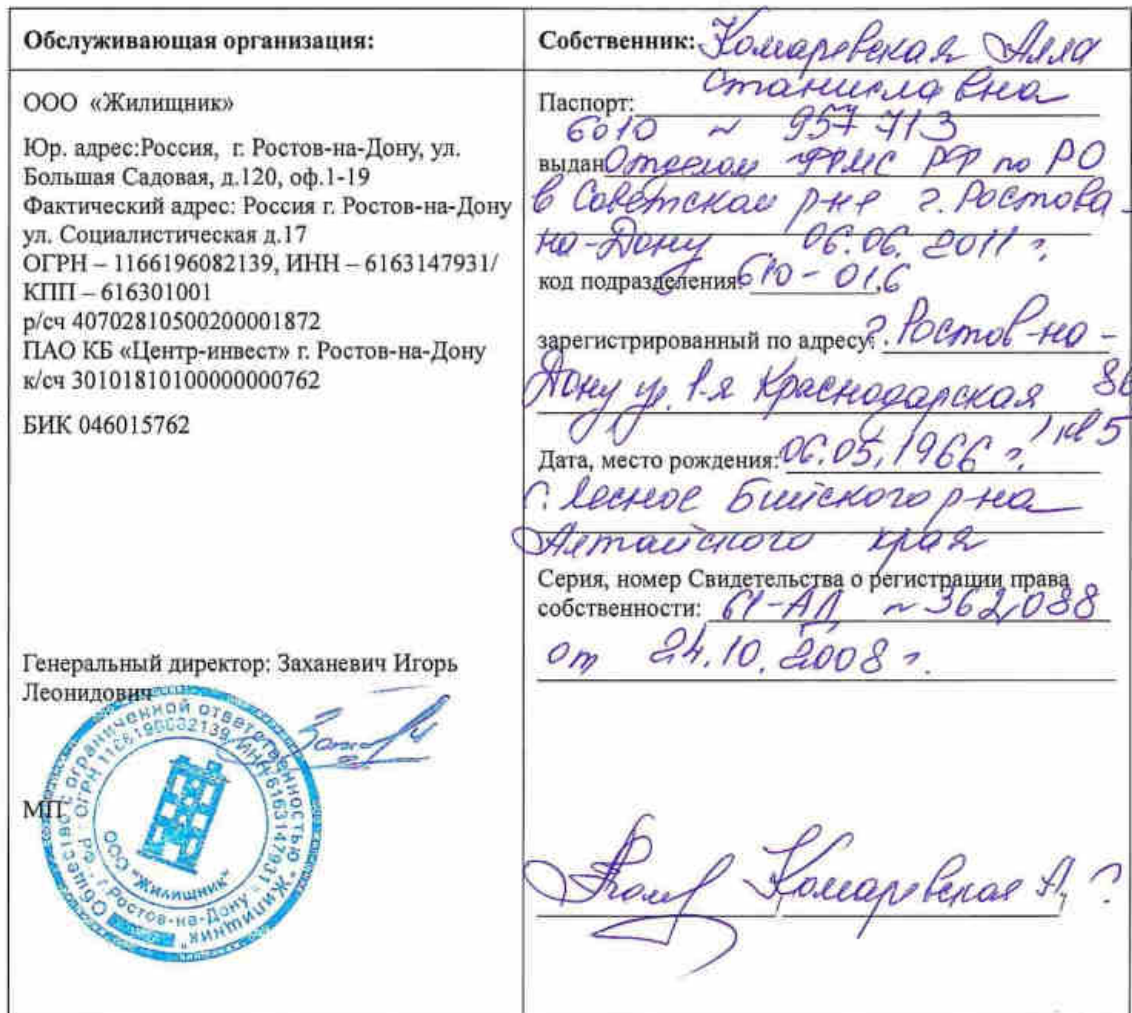 Обслуживающая организация:
ООО «Жилищник»
Юр. адрес:Россия, г. Ростов-на-Дону, ул.
Большая Садовая, д.120, оф.1-19
Фактический адрес: Россия г. Ростов-на-Дону
ул. Социалистическая д.17
ОГРН – 1166196082139, ИНН – 6163147931/
КПП – 616301001
р/сч 40702810500200001872
ПАО КБ «Центр-инвест» г. Ростов-на-Дону
к/сч 30101810100000000762
БИК 046015762
Генеральный директор: Заханевич Игорь
Леонидович
МП
Общество с ограниченной ответственностью "Жилищник"
РФ - г. Ростов-на-Дону ОГРН 1166196082139 ИНН 6163147931
ООО "Жилищник"
Собственник: Комаревская Алла
Станиславна
Паспорт:
6010 № 957713
выдан Отделом ФМС РФ по РО
в Советском р-не г. Ростова-
на-Дону 06.06.2011 г.
код подразделения: 610-016
зарегистрированный по адресу: г. Ростов-на-
Дону ул. 1-я Краснодарская
кв 5
Дата, место рождения: 06.05.1966 г.
с. Лесное Бийского р-на
Алтайского края
Серия, номер Свидетельства о регистрации права
собственности: 61-АД № 362088
от 24.10.2008 г.
Комаревская А.